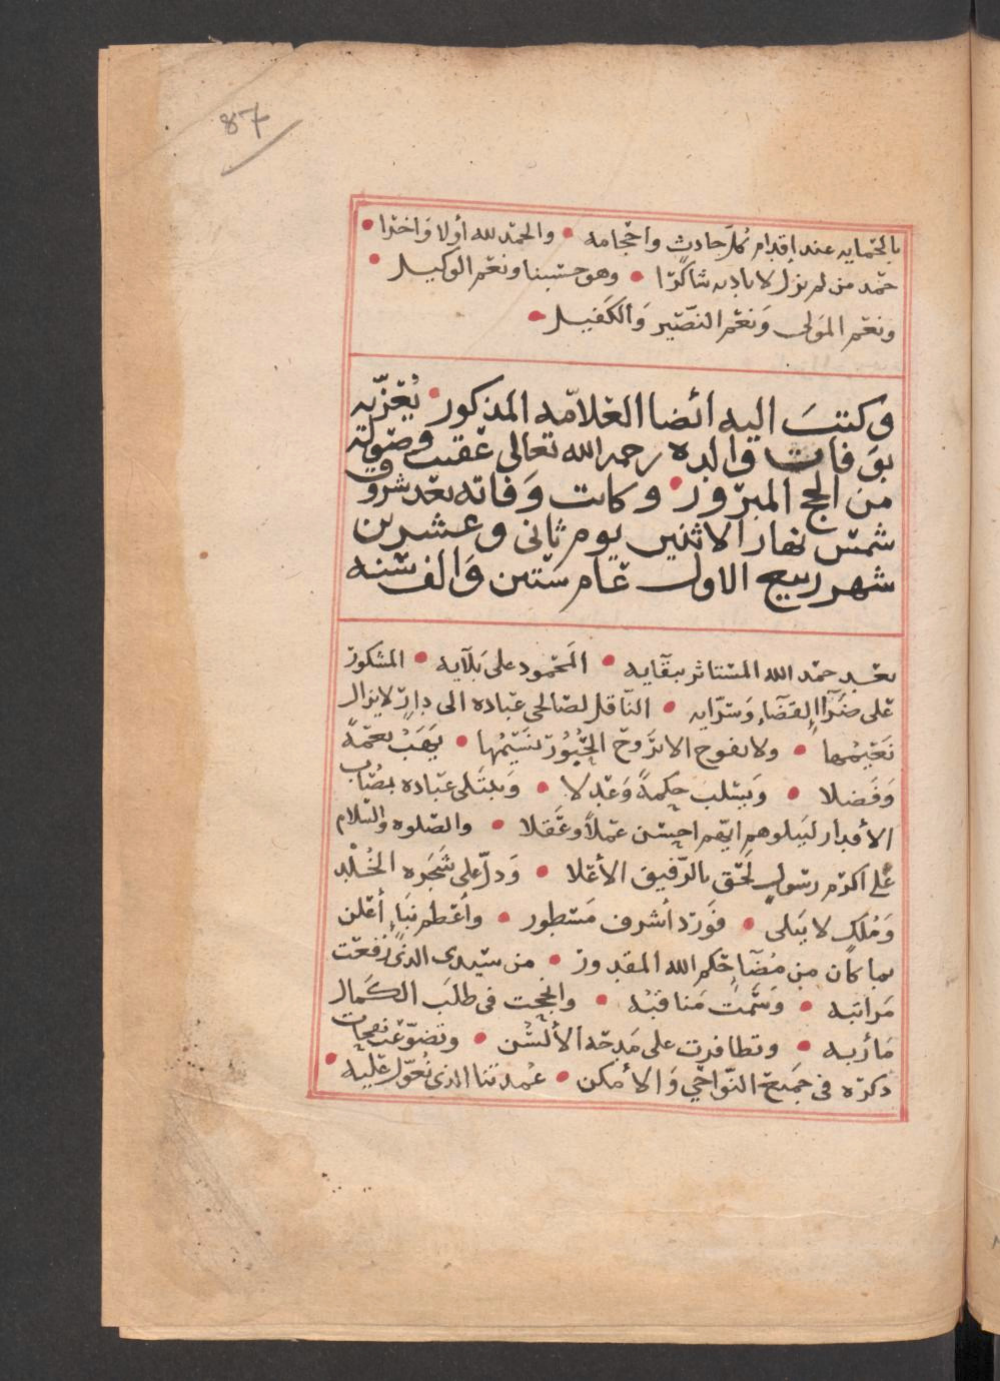 87
بالحمايه عند إقدام كل حادث واحجامه • والحمد لله أولا وَاخرًا •
حمد من لم يزل لاياديه شاكرًا • وهو حسبنا ونعم الوكيل •
ونعم المولى وَنعم النصير وَالكفيل •
وكتبَ اليه ائضا العلامه المذكور • يُعزّيه
بوَفات والده رحمه الله تعالى عقيب وصوله
من الحج المبرور • وكانت وَفاته بعد شروق
شمس نهار الاثنين يوم ثانى وعشرين
شهر ربيع الاول عام ستين وَالف سنه
بعد حمد الله المستاثر ببقايه • المحمود على بَلآيه • المشكور
على ضرّا القضاء وَسرّايه • الناقل لصالحى عباده الى دارٍ لا يزال
نَعيمُها • ولا يفوح الا برَوح الحُبُور نسَيمُها • يَهَبُ نعمةً
وَفَضلا • وَيسلب حكمةً وَعَدلا • وَيبتلى عباده بمُصاب
الأقدار ليبلوهم ايهم احسن عَملاً وعَقلا • والصلوه والسلام
على اكرم رسولٍ لَحق بالرّفيق الأعلا • وَدلّ على شَجَره الخُلد
وَمُلكٍ لا يَبلى • فوَرَد أشرف مَسطور • وأعظم نبَاءٍ أعلن
بما كان من مُضآ حكم الله المقدور • من سيدى الذى رُفعت
مَراتبه • وَسَمت مَناقبُه • وانجحت فى طلَب الكَمال
مَأربه • وتظافرت على مَدحه الألسُن • وتضوّعت نفحات
ذكره فى جَميع النّواحي وَالأمكن • عُمدتنا الذى نُعوّل علَيه •